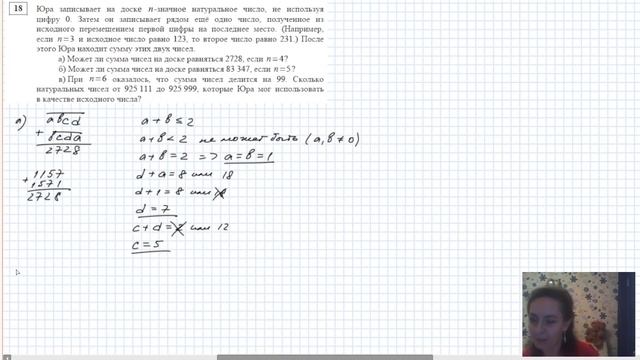 18 Юра записывает на доске n-значное натуральное число, не используя
цифру 0. Затем он записывает рядом ещё одно число, полученное из
исходного перемещением первой цифры на последнее место. (Например,
если n=3 и исходное число равно 123, то второе число равно 231.) После
этого Юра находит сумму этих двух чисел.
а) Может ли сумма чисел на доске равняться 2728, если n=4?
б) Может ли сумма чисел на доске равняться 83 347, если n=5?
в) При n=6 оказалось, что сумма чисел делится на 99. Сколько
натуральных чисел от 925 111 до 925 999, которые Юра мог использовать
в качестве исходного числа?
а) abcd
+ bcda
2728
1157
+ 1571
2728
a+b≤2
a+b<2 не может быть (a,b≠0)
a+b=2 => a=b=1
d+a=8 или 18
d+1=8 или 18
d=7
c+d=2 или 12
c=5